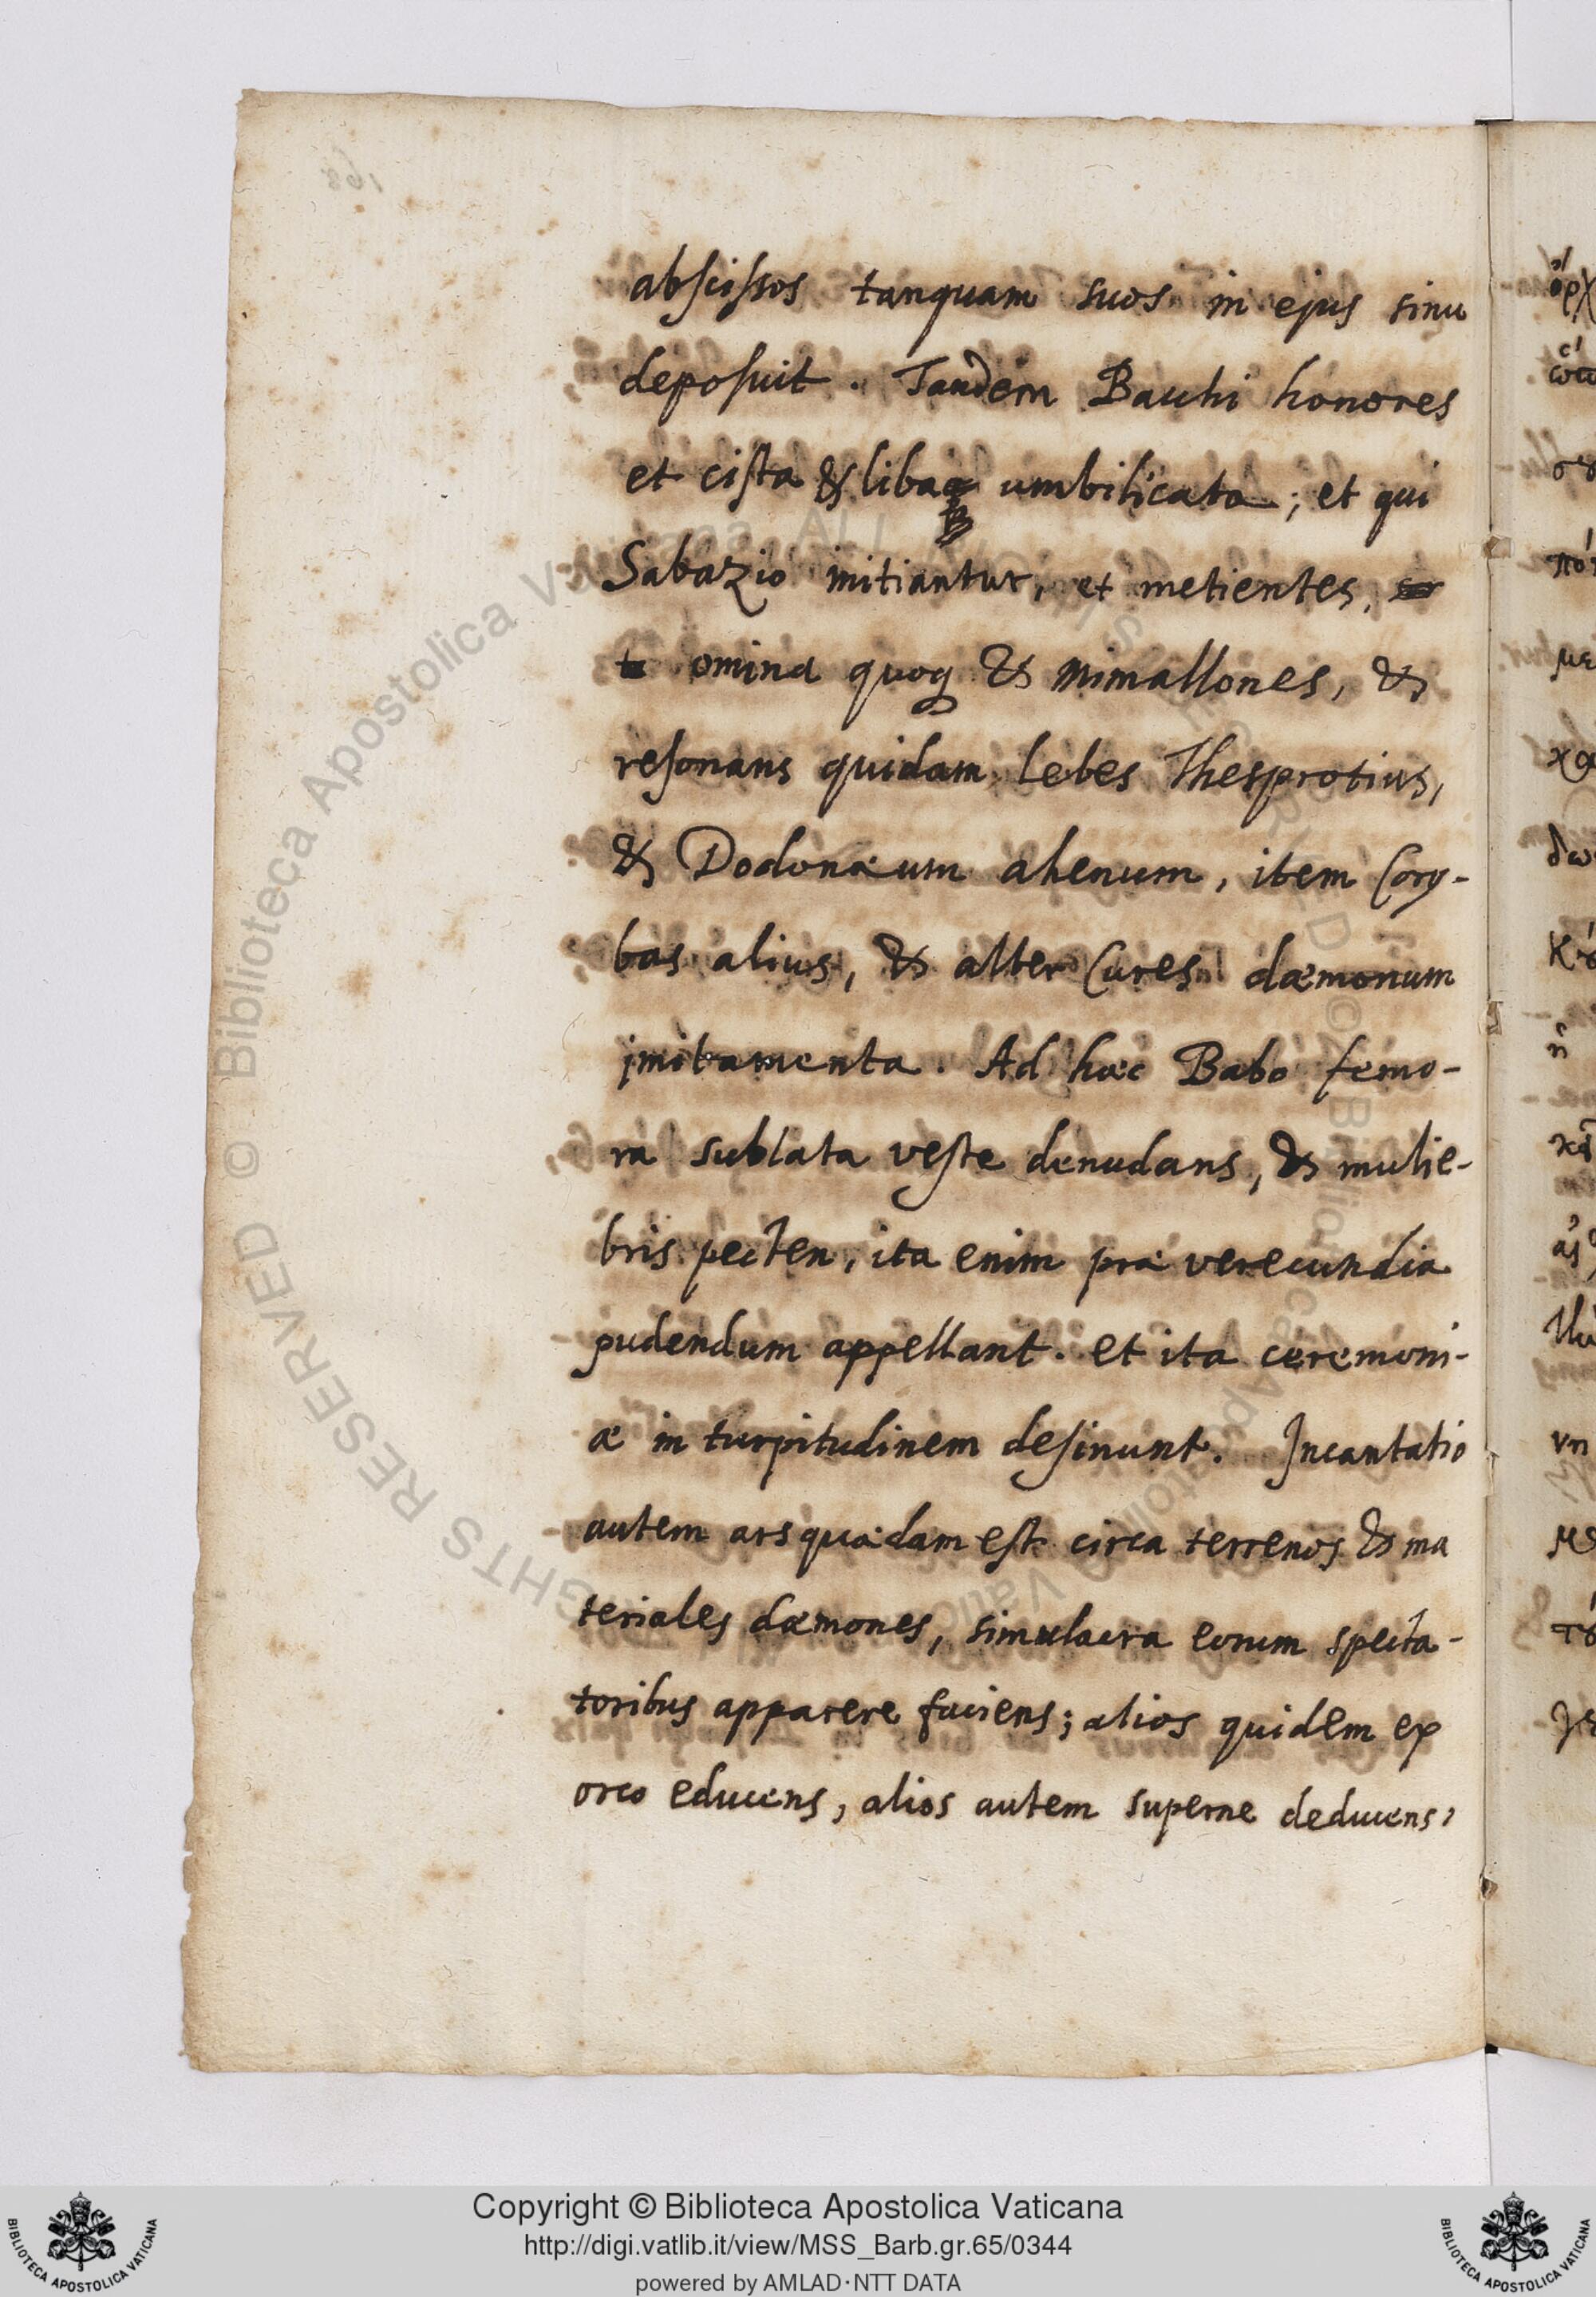 abscissos tanquam suos in ejus sinu
deposuit. Tandem Bacchi honores
et cista & liba umbilicata; et qui
Sabazio initiantur, et metientes,
omina quoq & mimallones, &
resonans quidam lebes Thesprotius,
& Dodonæum ahenum, item Cory-
bas alius, & alter Cures dæmonum
imitamenta. Ad hæc Babo femo-
ra sublata veste denudans, & mulie-
bris pecten, ita enim præ verecundia
pudendum appellant. et ita ceremoni-
æ in turpitudinem desinunt. Incantatio
autem ars quædam est circa terrenos & ma
teriales dæmones, simulacra eorum specta-
toribus apparere faciens; alios quidem ex
orco educens, alios autem superne deducens,
Copyright © Biblioteca Apostolica Vaticana
http://digi.vatlib.it/view/MSS_Barb.gr.65/0344
powered by AMLAD·NTT DATA